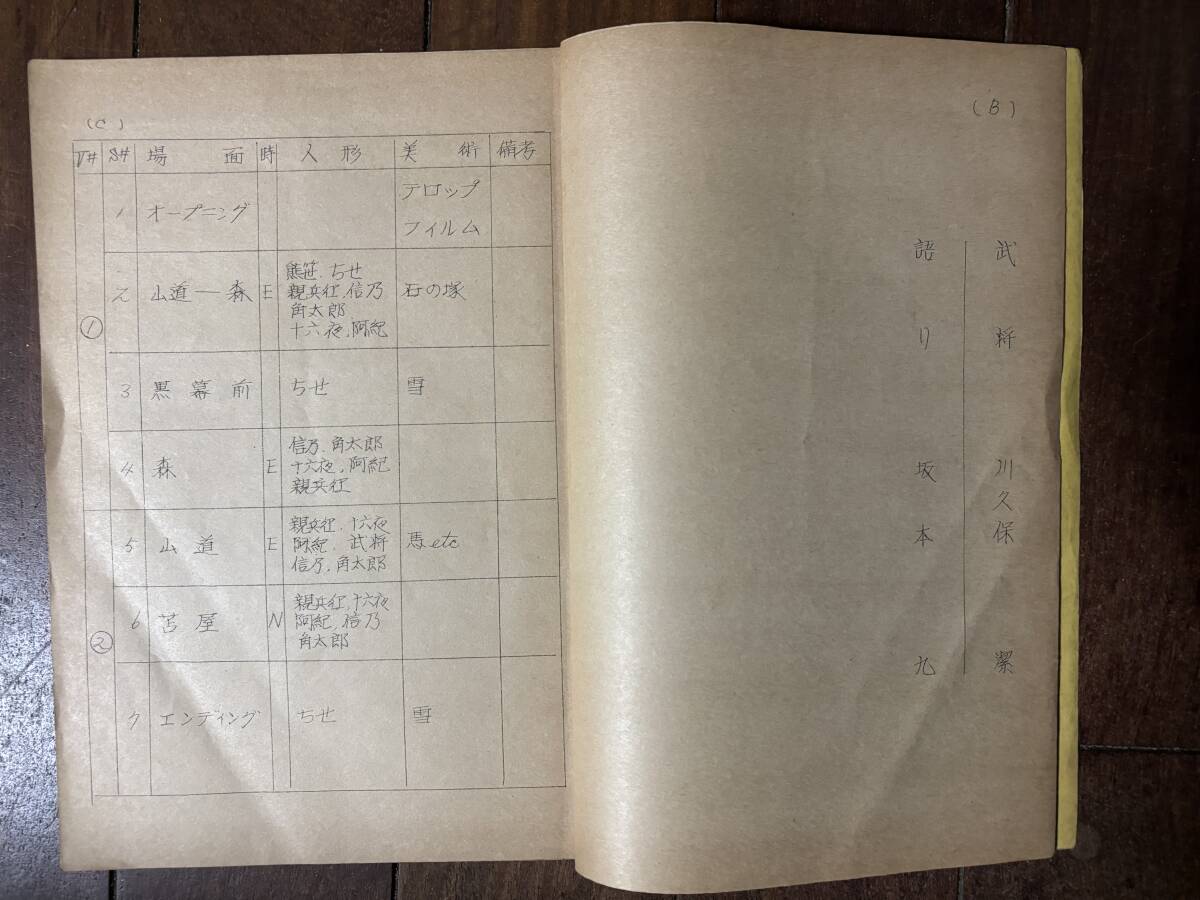 (B)
武将 川久保潔
語り 坂本九
(C)
V# S# 場面 時 人形 美術 備考
1 オープニング テロップ
フィルム
① 2 山道―森 E 熊笹、ちせ
親兵衛、信乃 石の塚
角太郎
十六夜、阿紀
3 黒幕前 ちせ 雪
4 森 E 信乃、角太郎
十六夜、阿紀
親兵衛
5 山道 E 親兵衛、十六夜
阿紀、武将 馬etc
信乃、角太郎
② 6 苫屋 N 親兵衛、十六夜
阿紀、信乃
角太郎
7 エンディング ちせ 雪